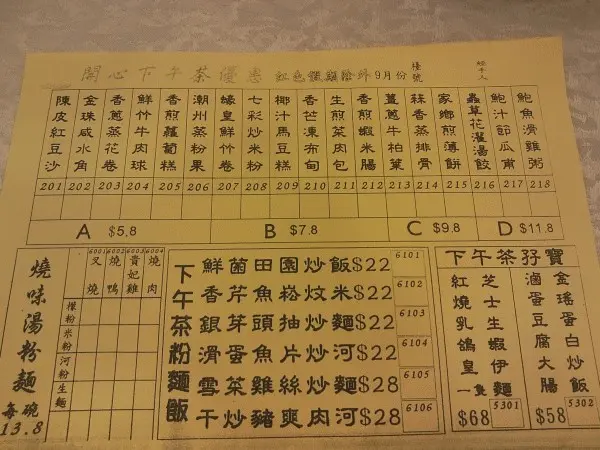 開心下午茶優惠 紅色假期除外 9月份 檯號 經手人
陳皮紅豆沙 201
金珠咸水角 202
香蔥蒸花卷 203
鮮竹牛肉球 204
香煎蘿蔔糕 205
潮州蒸粉果 206
蠔皇鮮竹卷 207
七彩炒米粉 208
椰汁馬豆糕 209
香芒凍布甸 210
生煎菜肉包 211
香煎蝦米腸 212
薑蔥牛柏葉 213
蒜香蒸排骨 214
家鄉煎薄餅 215
蟲草花灌湯餃 216
鮑汁節瓜甫 217
鮑魚滑雞粥 218
A $5.8
B $7.8
C $9.8
D $11.8
燒味湯粉麵
每碗
13.8
6001 6002 6003 6004
叉燒 燒鴨 貴妃雞 燒肉
檬粉
米粉
河粉
生麵
下午茶粉麵飯
鮮菌田園炒飯$22 6101
香芹魚崧炆米$22 6102
銀芽頭抽炒麵$22 6103
滑蛋魚片炒河$22 6104
雪菜雞絲炒麵$28 6105
干炒豬爽肉河$28 6106
下午茶孖寶
紅燒乳鴿皇一隻
芝士生蝦伊麵
$68 5301
滷蛋豆腐大腸
金瑤蛋白炒飯
$58 5302